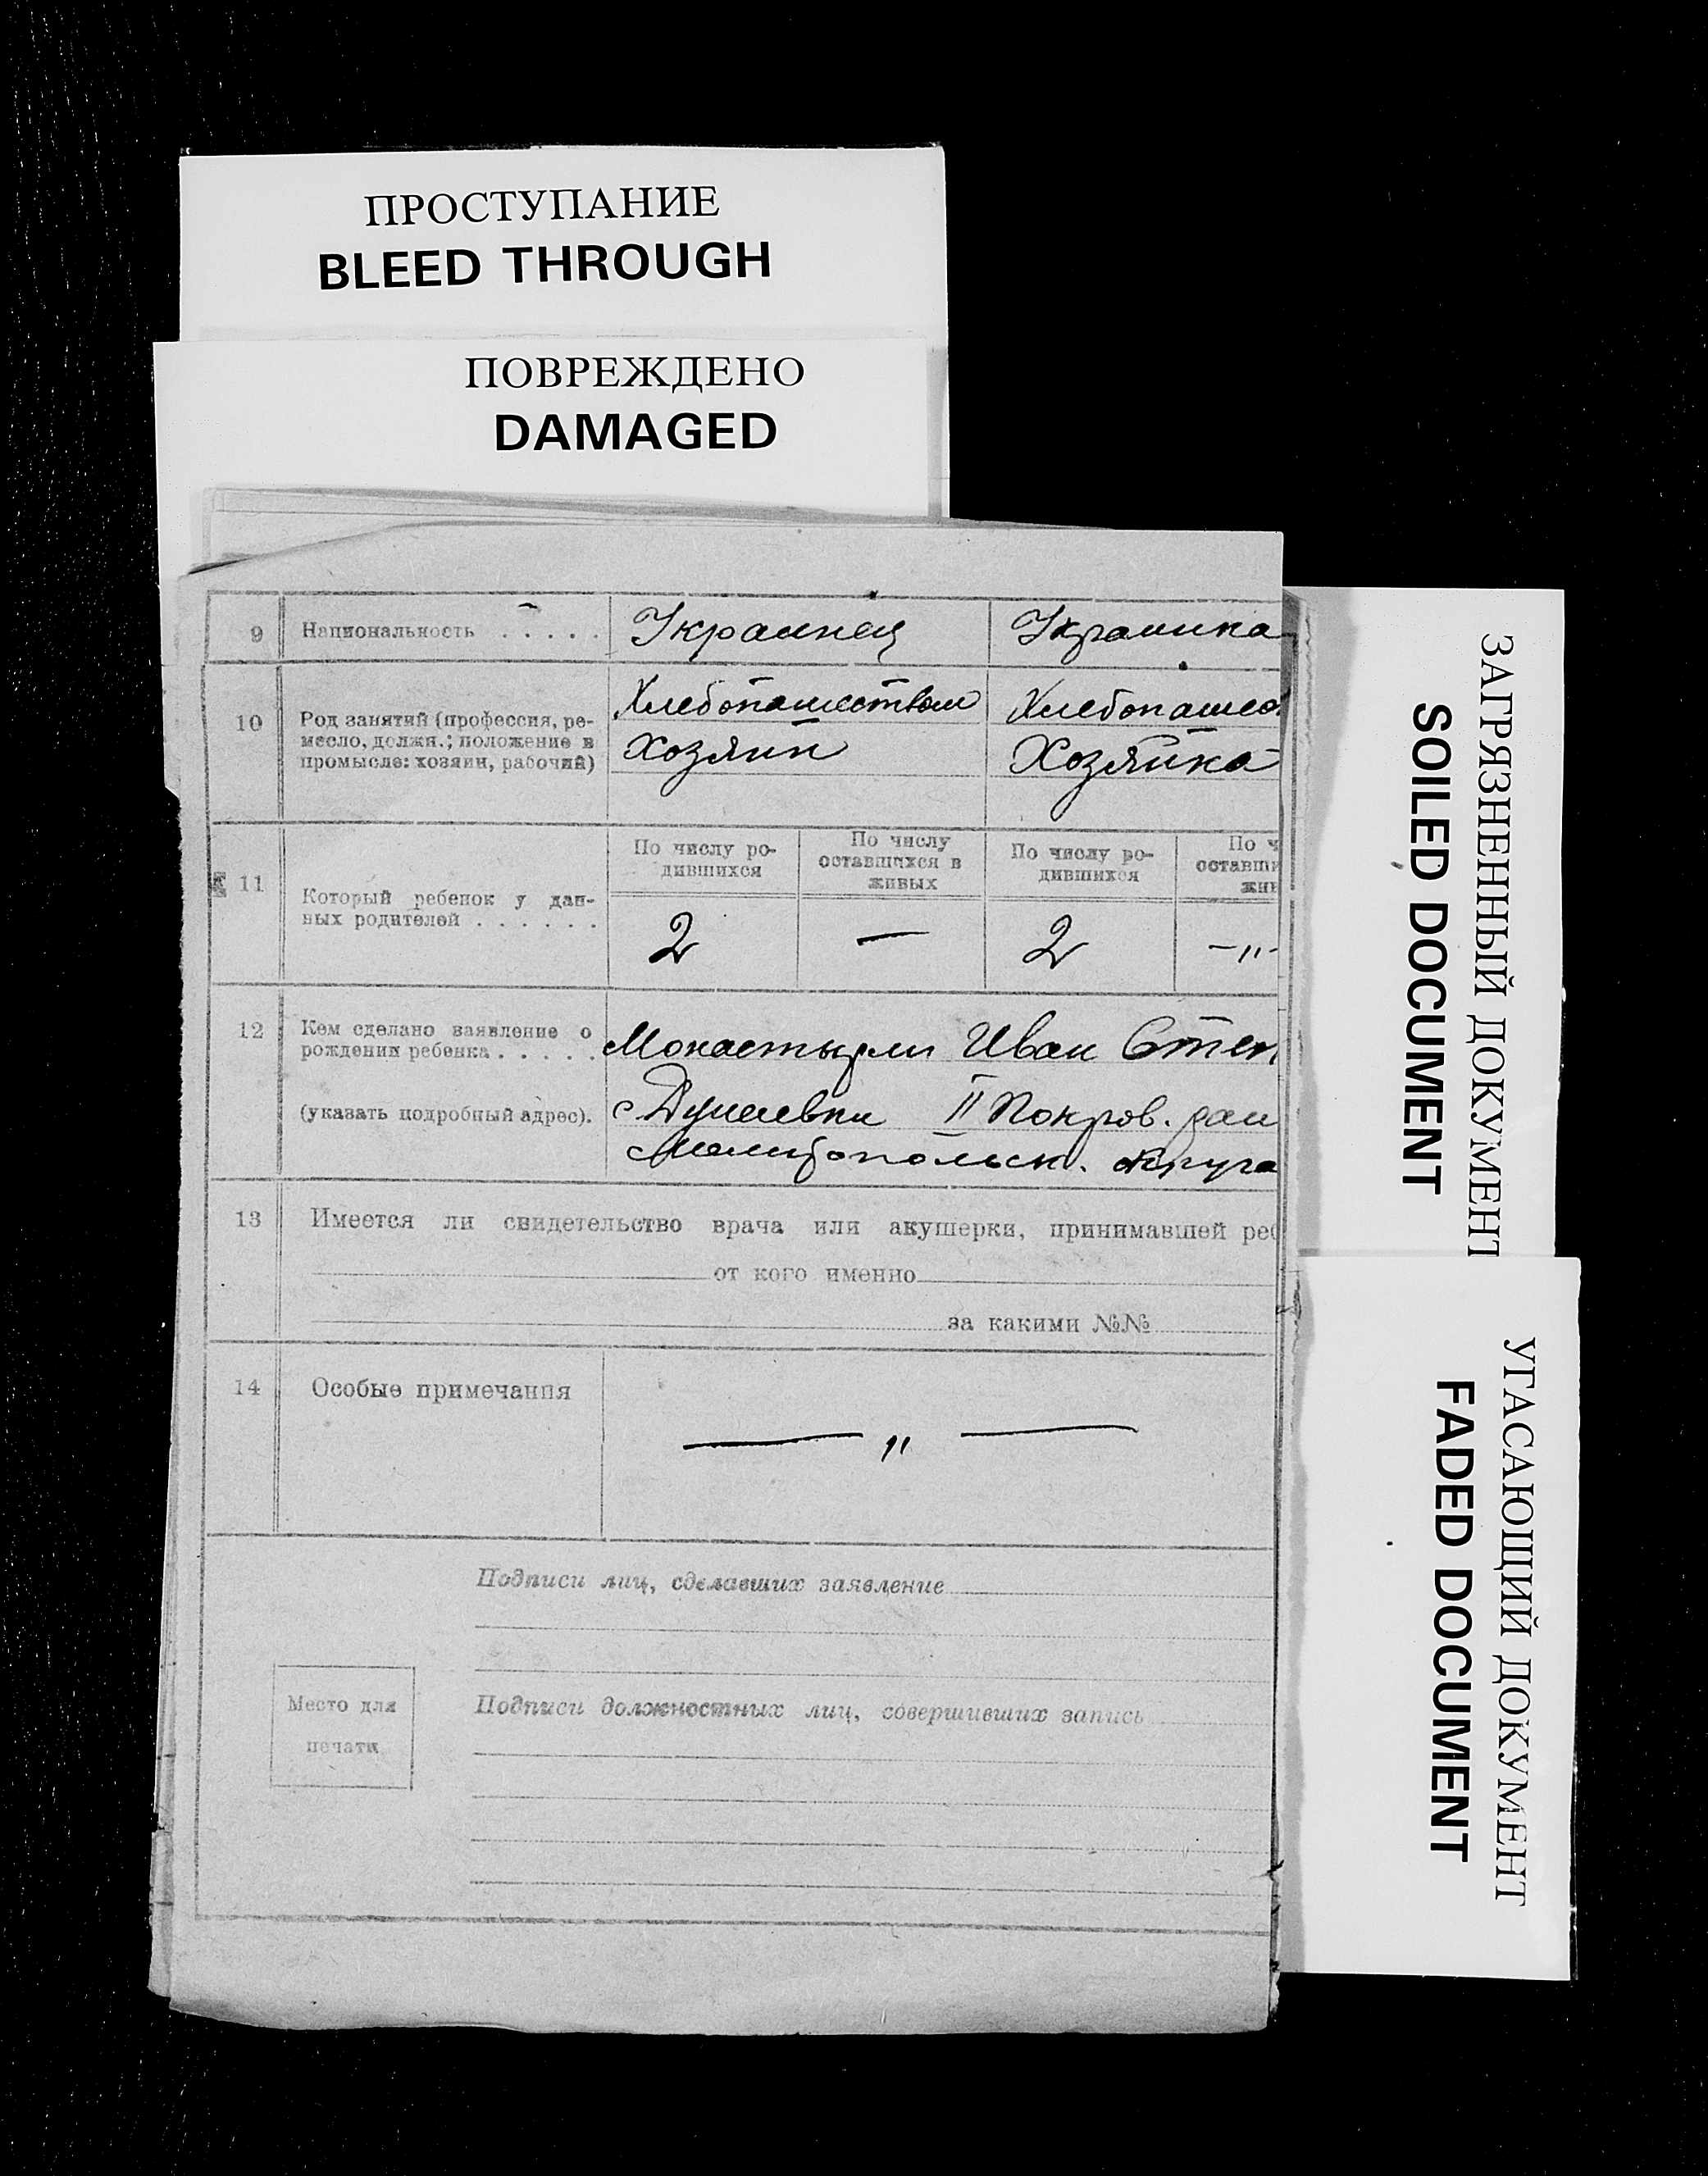 ПРОСТУПАНИЕ
BLEED THROUGH
ПОВРЕЖДЕНО
DAMAGED
9 Национальность . . . . . Украинец Украинка
10 Род занятий (профессия, ре-
месло, должн.; положение в
промысле: хозяин, рабочий)
Хлебопашеством
Хозяин
Хлебопашес
Хозяйка
11 Который ребенок у дан-
ных родителей . . . . . .
По числу ро-
дившихся
По числу
оставшихся в
живых
По числу ро-
дившихся
По ч
оставши
жив
2 — 2 —„-
12 Кем сделано заявление о
рождении ребенка . . . . .
(указать подробный адрес).
Монастырли Иван Степ
с II Покров. рай
Мелитопольск. округа
13 Имеется ли свидетельство врача или акушерки, принимавшей реб
от кого именно
за какими №№
14 Особые примечания
— „ —
Подписи лиц, сделавших заявление
Место для
печати
Подписи должностных лиц, совершивших запись
ЗАГРЯЗНЕННЫЙ ДОКУМЕНТ
SOILED DOCUMENT
УГАСАЮЩИЙ ДОКУМЕНТ
FADED DOCUMENT